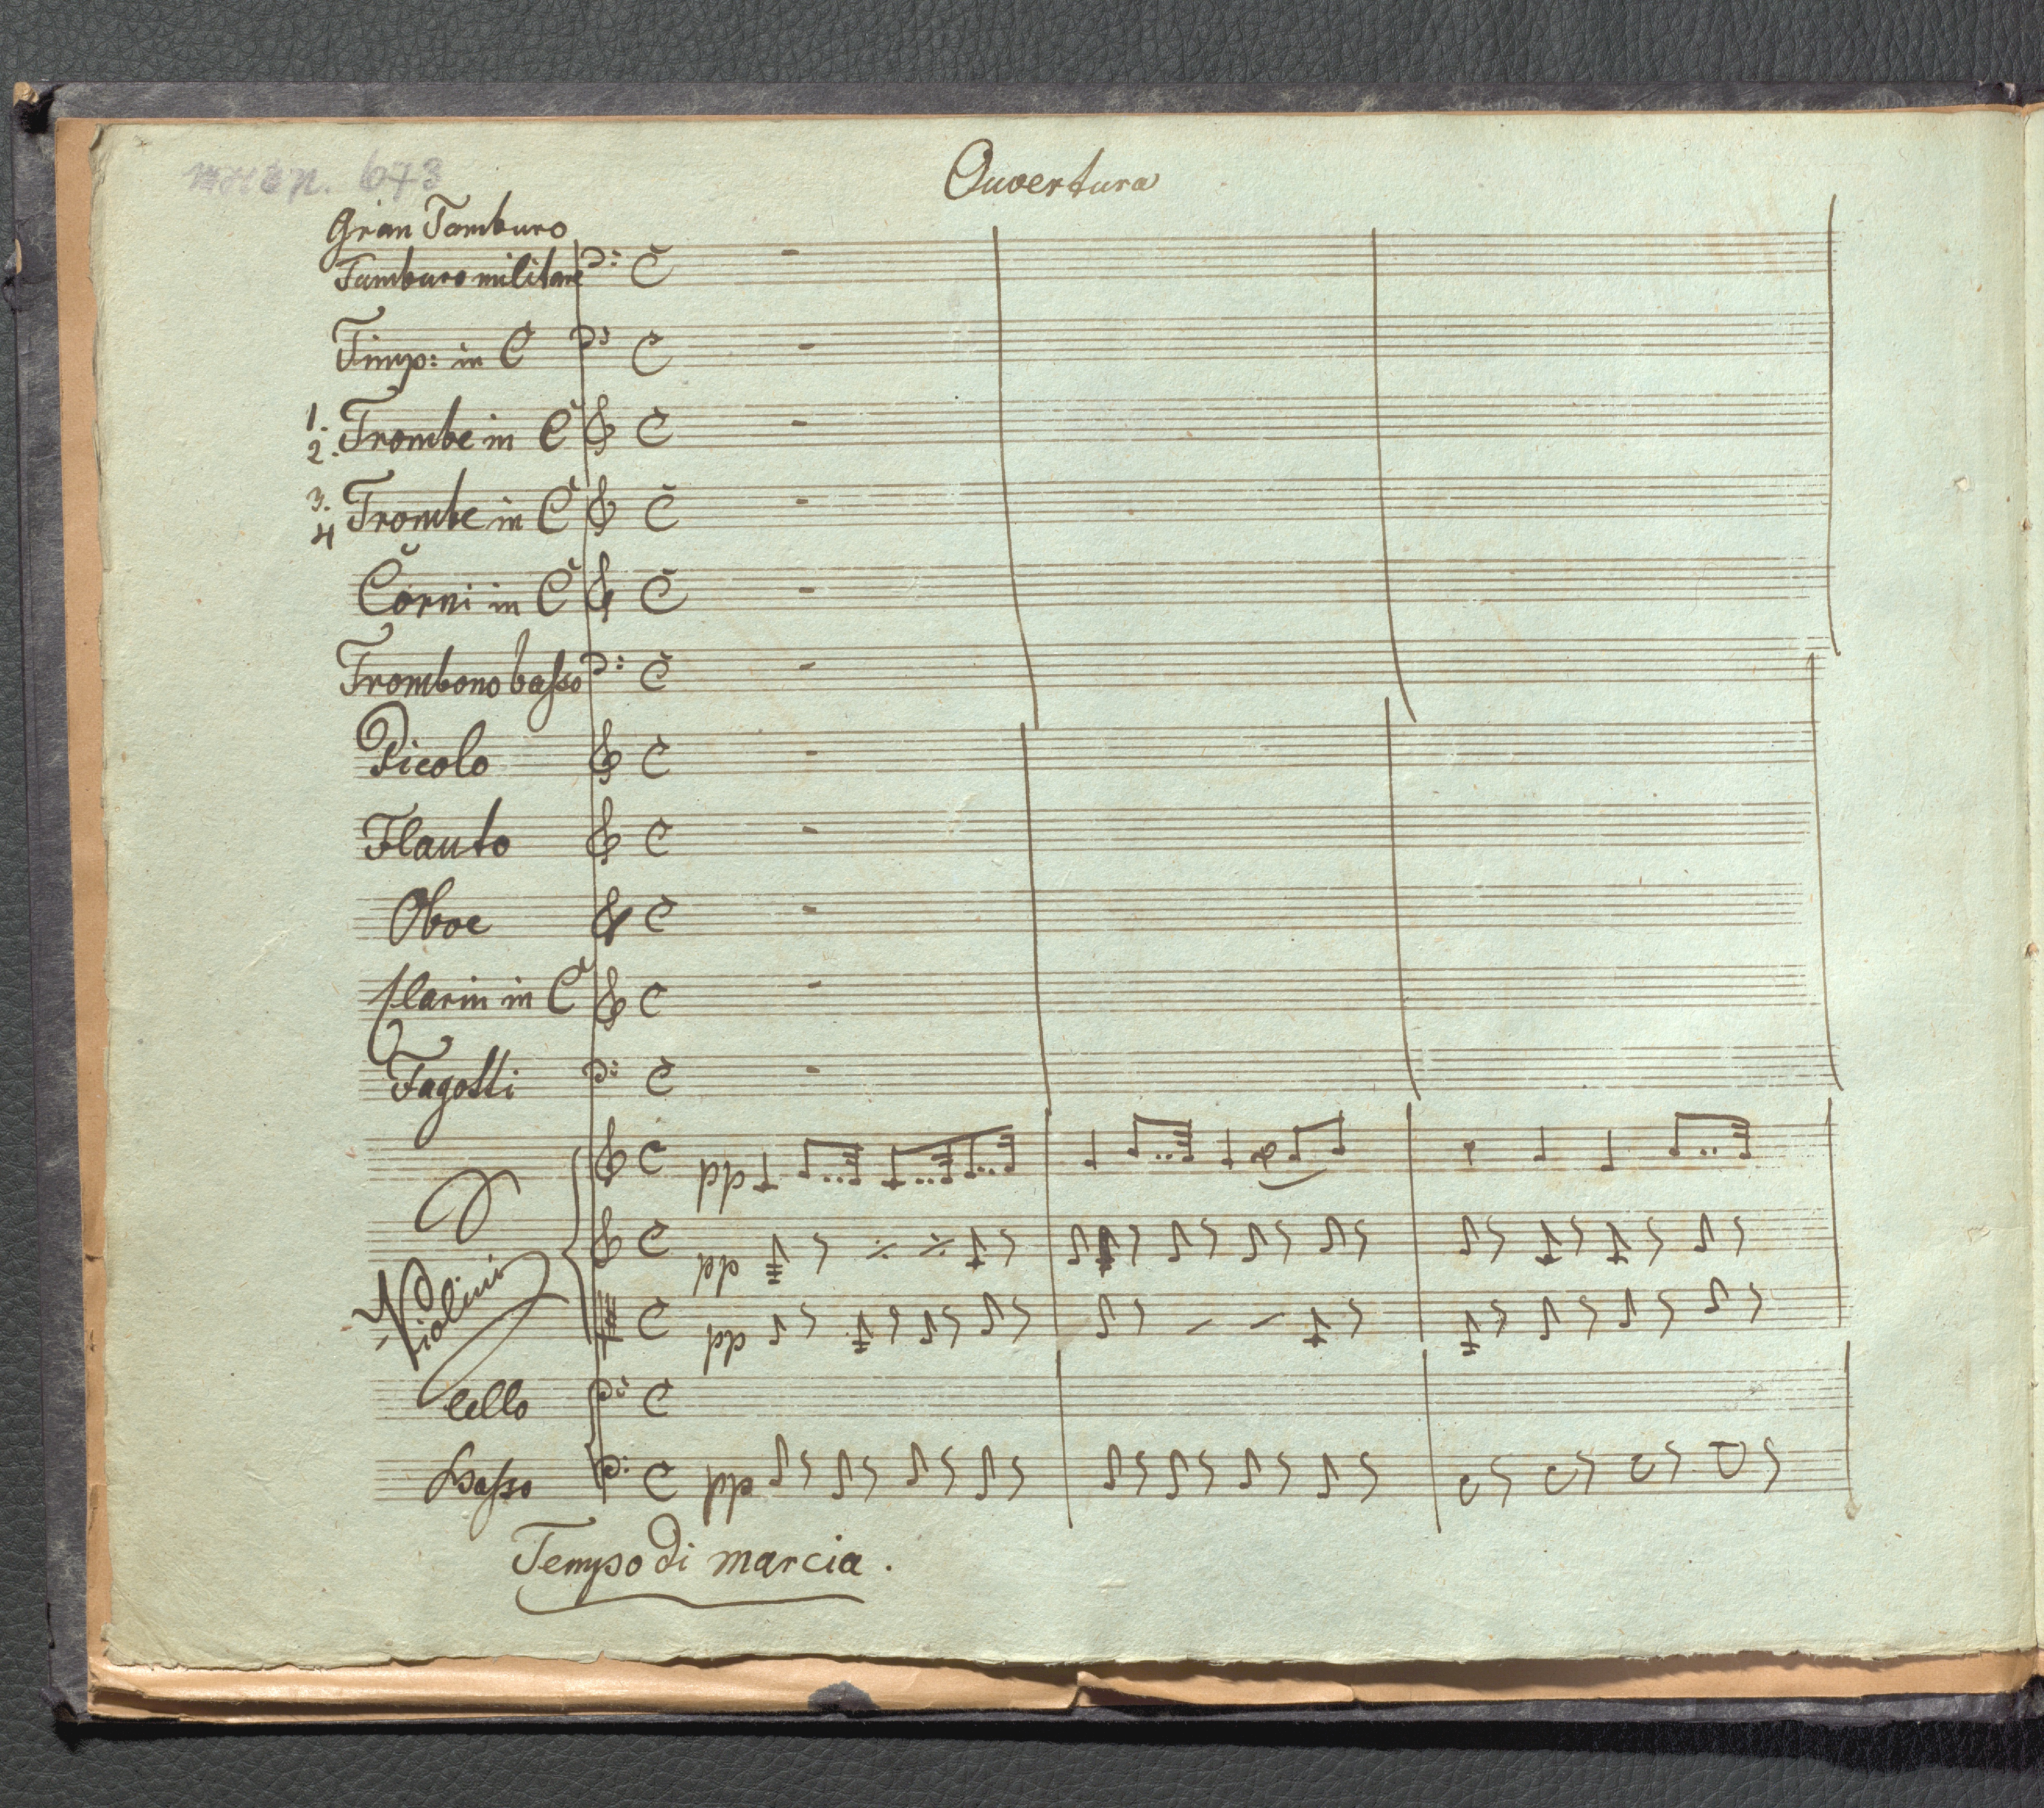 Ouvertura
Gran Tamburo
Tamburo militare
Timp: in C
1.
2. Trombe in C
3.
4 Trombe in C
Corni in C
Trombono basso
Picolo
Flauto
Oboe
Clarin in C
Fagotti
pp
Violini
pp
pp
Cello
Basso
pp
Tempo di marcia.